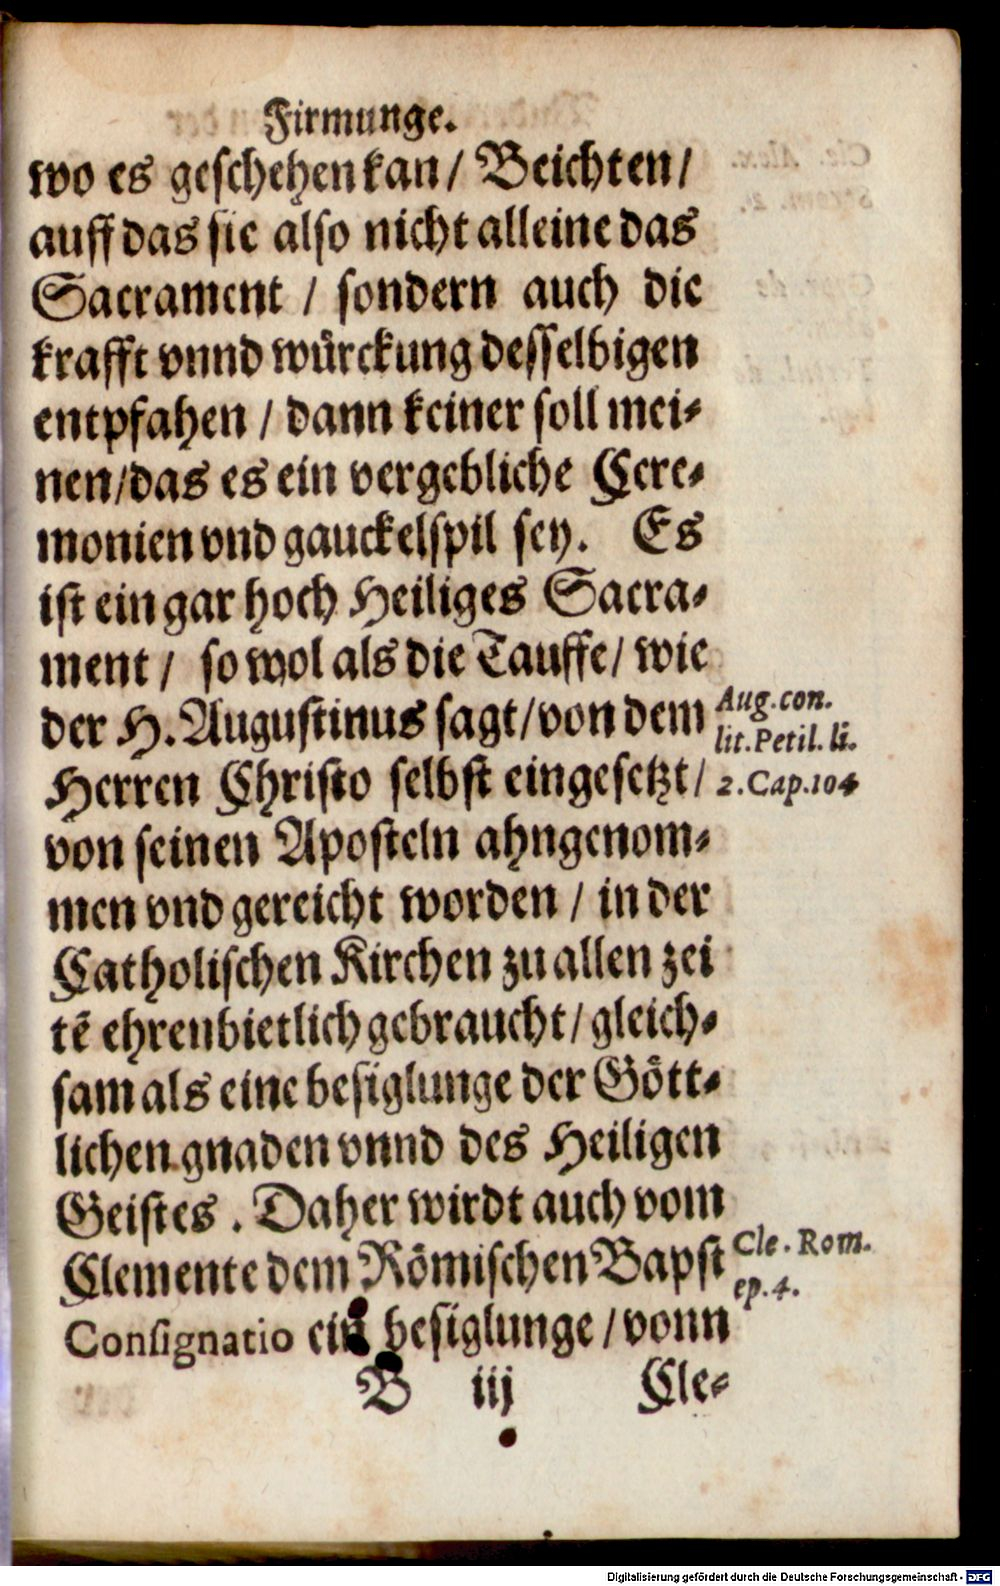 Firmunge.
wo es geschehen kan/ Beichten/
auff das sie also nicht alleine das
Sacrament / sondern auch die
krafft vnnd würckung desselbigen
entpfahen / dann keiner soll mei-
nen/das es ein vergebliche Cere-
monien vnd gauckelspil sey. Es
ist ein gar hoch Heiliges Sacra-
ment / so wol als die Tauffe/ wie
der H. Augustinus sagt/von dem
Aug. con.
lit. Petil. li.
Herren Christo selbst eingesetzt/
2. Cap. 104
von seinen Aposteln ahngenom-
men vnd gereicht worden / in der
Catholischen Kirchen zu allen zei
tē ehrenbietlich gebraucht/gleich-
sam als eine besiglunge der Gött-
lichen gnaden vnnd des Heiligen
Geistes . Daher wirdt auch vom
Clemente dem Römischen Bapst
Cle. Rom.
ep. 4.
Consignatio ein besiglunge / vonn
B iij Cle-
Digitalisierung gefördert durch die Deutsche Forschungsgemeinschaft - DFG